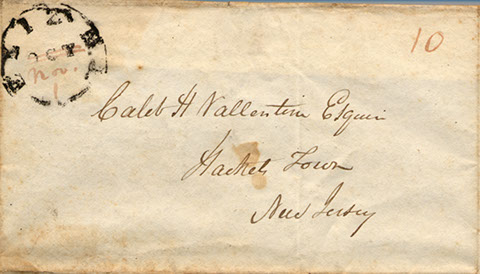 10
OCT
Nov.
1
Caleb H Vallentine Esquire
Hackets Town
New Jersey